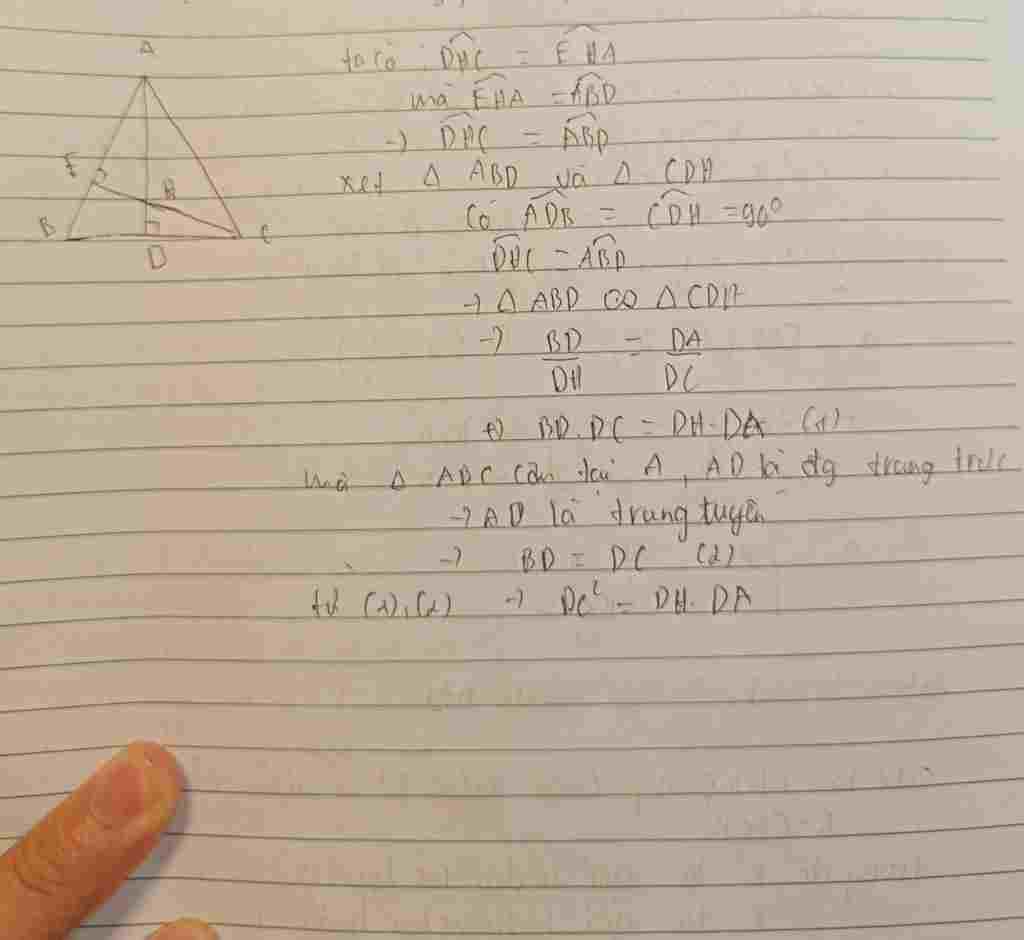 A
E
H
B
C
D
ta có : \widehat{DHC} = \widehat{EHA}
mà \widehat{EHA} = \widehat{ABD}
→ \widehat{DHC} = \widehat{ABD}
xét Δ ABD và Δ CDH
Có \widehat{ADB} = \widehat{CDH} = 90°
\widehat{DHC} = \widehat{ABD}
→ Δ ABD ∽ Δ CDH
→ BD/DH = DA/DC
BD.DC = DH.DA (1)
mà Δ ABC cân tại A, AD là đg trung trực
→ AD là trung tuyến
→ BD = DC (2)
từ (1),(2) → DC² = DH.DA